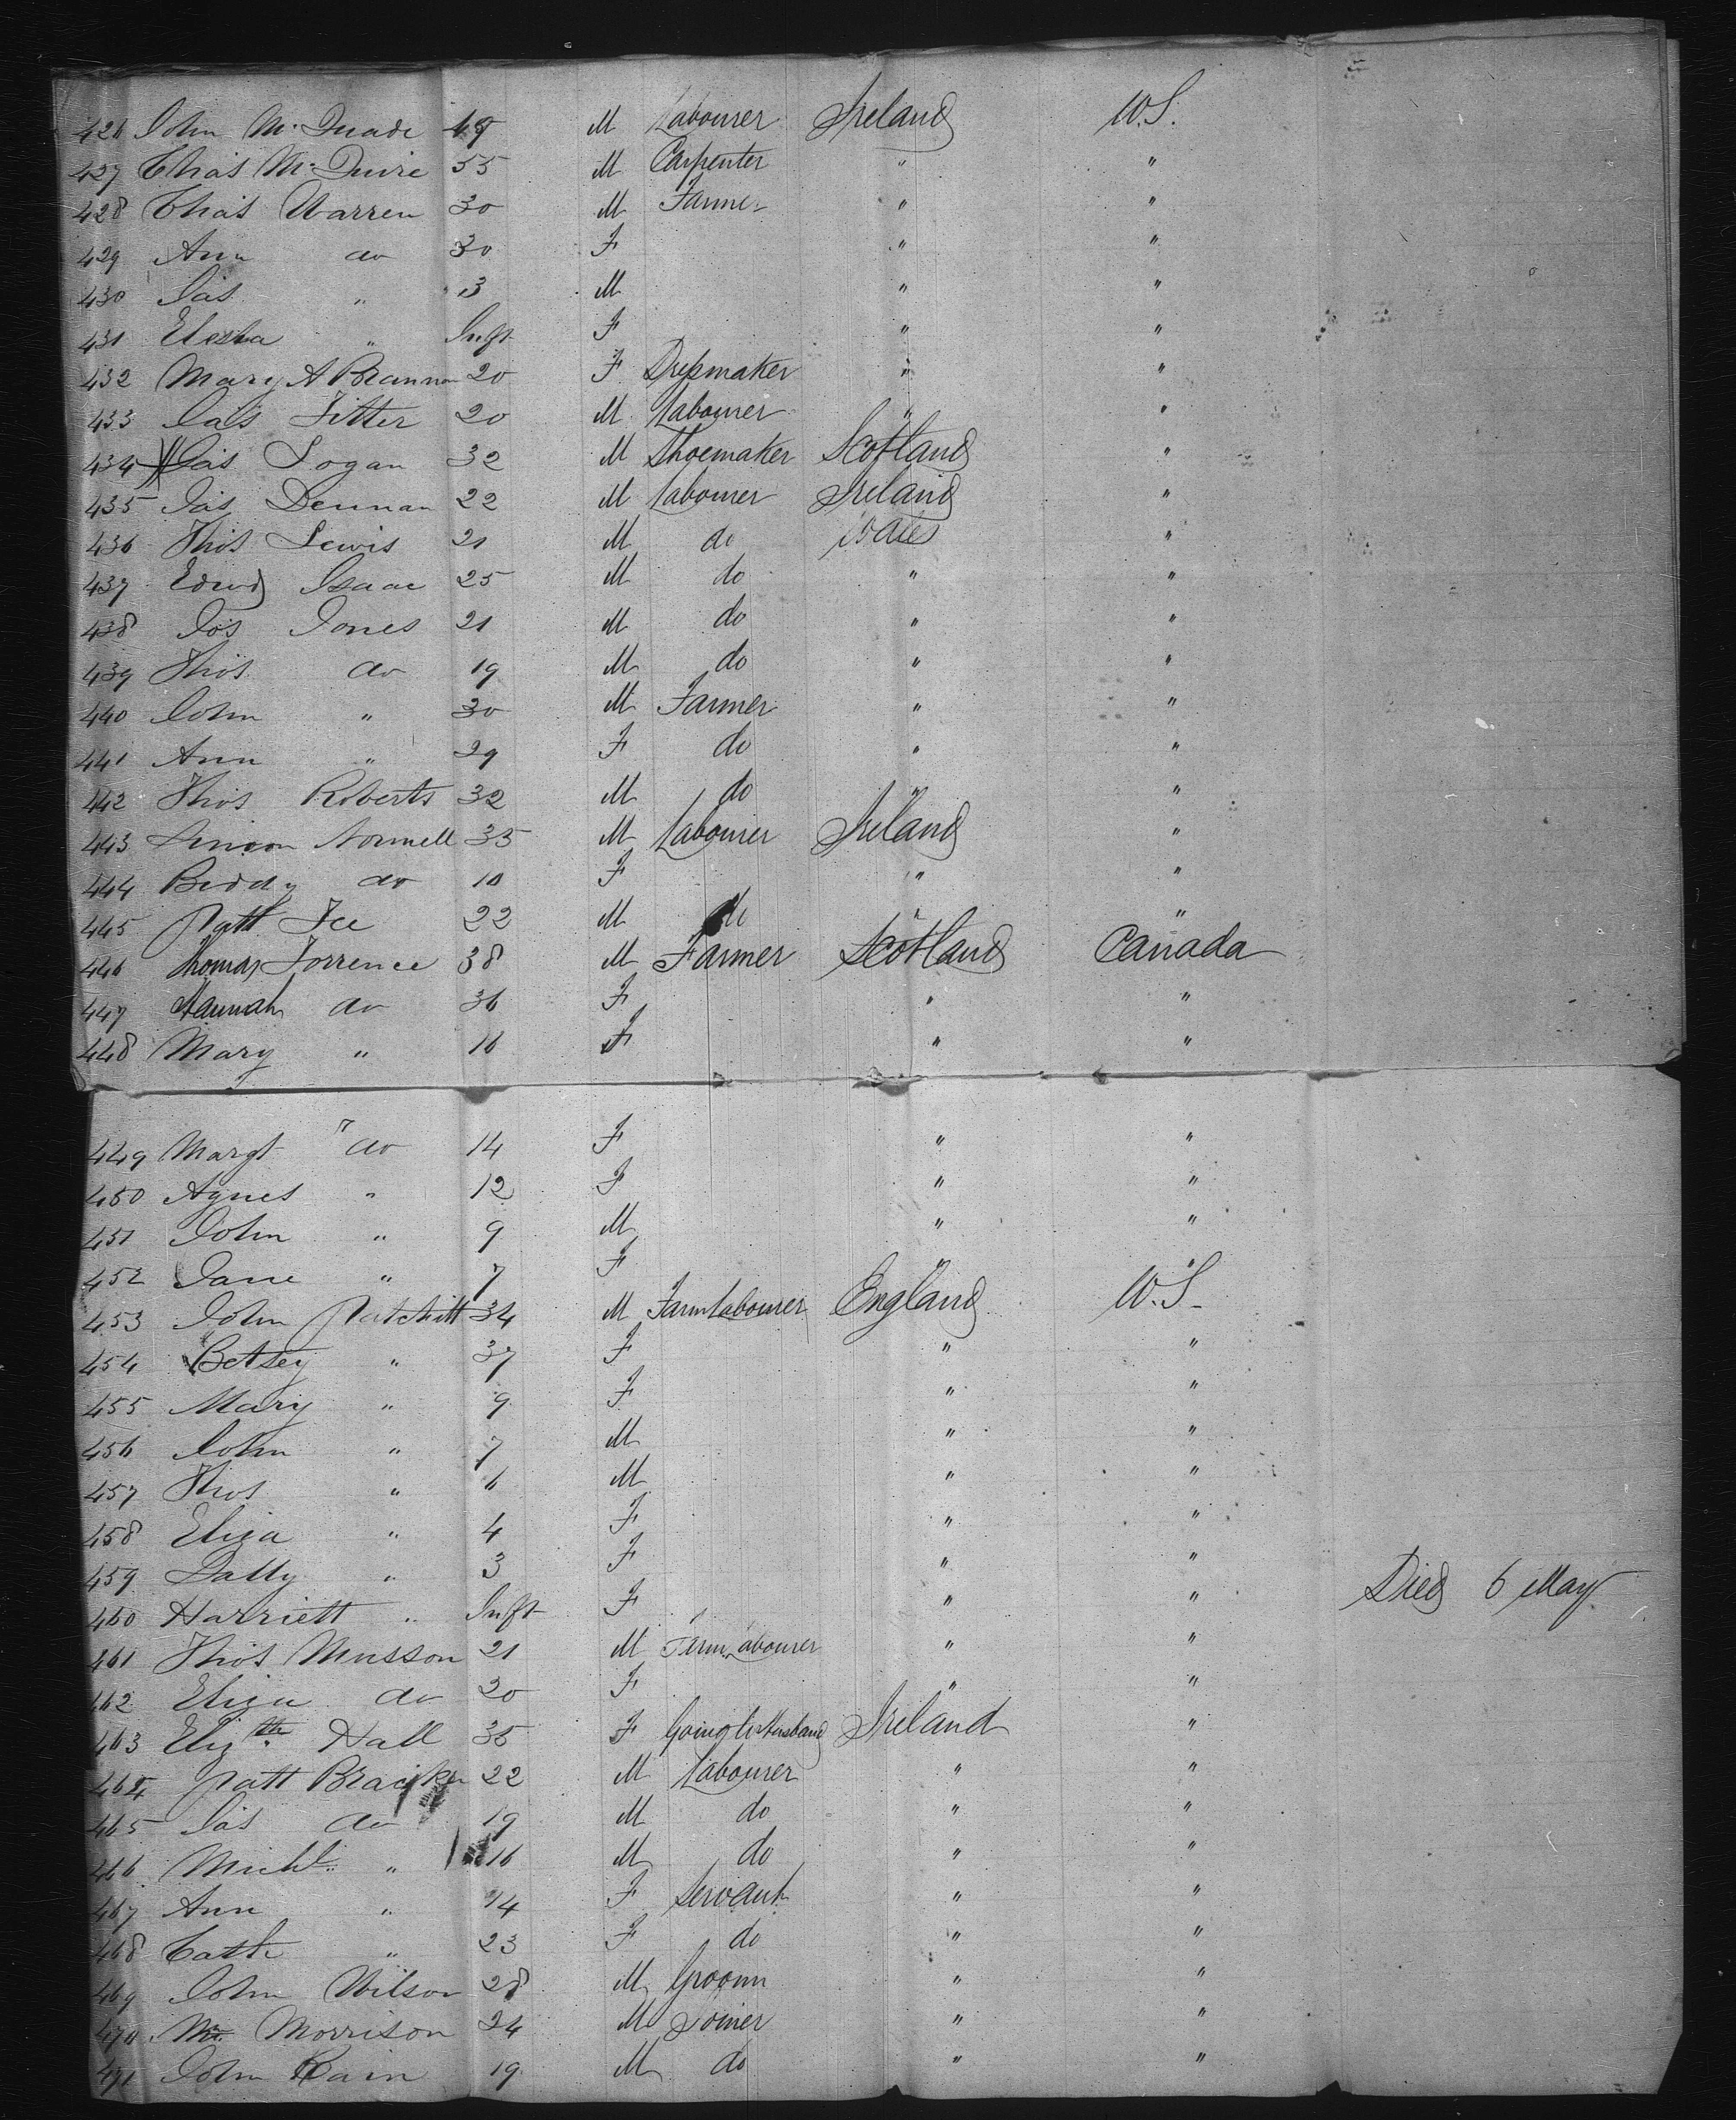 426 John McQuade 49 M Labourer Ireland W.S.
427 Chas McQuire 55 M Carpenter " "
428 Chas Warren 30 M Farmer " "
429 Ann do 30 F " "
430 Jas " 3 M " "
431 " Inft F " "
432 Mary A Brannon 20 F Dressmaker " "
433 Jas Fitter 20 M Labourer " "
434 Jas Logan 32 M Shoemaker Scotland "
435 Jas Dennan 22 M Labourer Ireland "
436 Thos Lewis 21 M do Wales "
437 Edwd Isaac 25 M do " "
438 Jos Jones 21 M do " "
439 Thos do 19 M do " "
440 John " 30 M Farmer " "
441 Ann " 29 F do " "
442 Thos Roberts 32 M do " "
443 35 M Labourer Ireland "
444 Biddy do 10 F " "
445 Patt Fee 22 M do " "
446 Thomas Torrence 38 M Farmer Scotland Canada
447 Hannah do 36 F " "
448 Mary " 16 F " "
449 Margt do 14 F " "
450 Agnes " 12 F " "
451 John " 9 M " "
452 Jane " 7 F " "
453 John Patchitt 34 M Farm Labourer England W.S.
454 Betsey " 37 F " "
455 Mary " 9 F " "
456 John " 7 M " "
457 Thos " 6 M " "
458 Eliza " 4 F " "
459 Sally " 3 F " "
460 Harriett " Inft F " " Died 6 May
461 Thos Musson 21 M Farm Labourer " "
462 Eliza do 20 F " "
463 Elizth Hall 35 F Going to Husband Ireland "
464 Patt Bracken 22 M Labourer " "
465 Jas do 19 M do " "
466 Michl " 16 M do " "
467 Ann " 14 F Servant " "
468 Cath " 23 F do " "
469 John Wilson 28 M Groom " "
470 Morrison 24 M Joiner " "
471 John Kain 19 M do " "